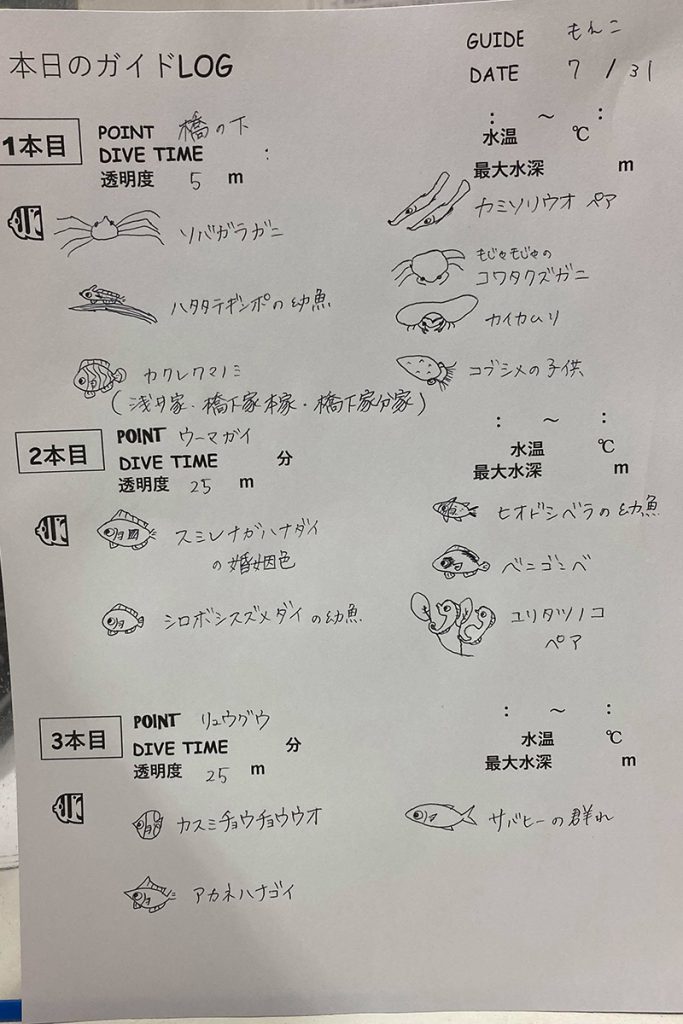 本日のガイドLOG
GUIDE もんこ
DATE 7/31
1本目
POINT 橋の下
DIVE TIME :
透明度 5 m
: ～ :
水温 ℃
最大水深 m
ソバガラガニ
ハタタテギンポの幼魚
カクレクマノミ
(浅井家・橋下家本家・橋下家分家)
カミソリウオ ペア
もじゃもじゃの
コワタクズガニ
カイカムリ
コブシメの子供
2本目
POINT ウーマガイ
DIVE TIME 分
透明度 25 m
: ～ :
水温 ℃
最大水深 m
スミレナガハナダイ
の婚姻色
シロボシスズメダイの幼魚
ヒオドシベラの幼魚
ベニゴンベ
ユリタツノコ
ペア
3本目
POINT リュウグウ
DIVE TIME 分
透明度 25 m
: ～ :
水温 ℃
最大水深 m
カスミチョウチョウウオ
アカネハナゴイ
サバヒーの群れ